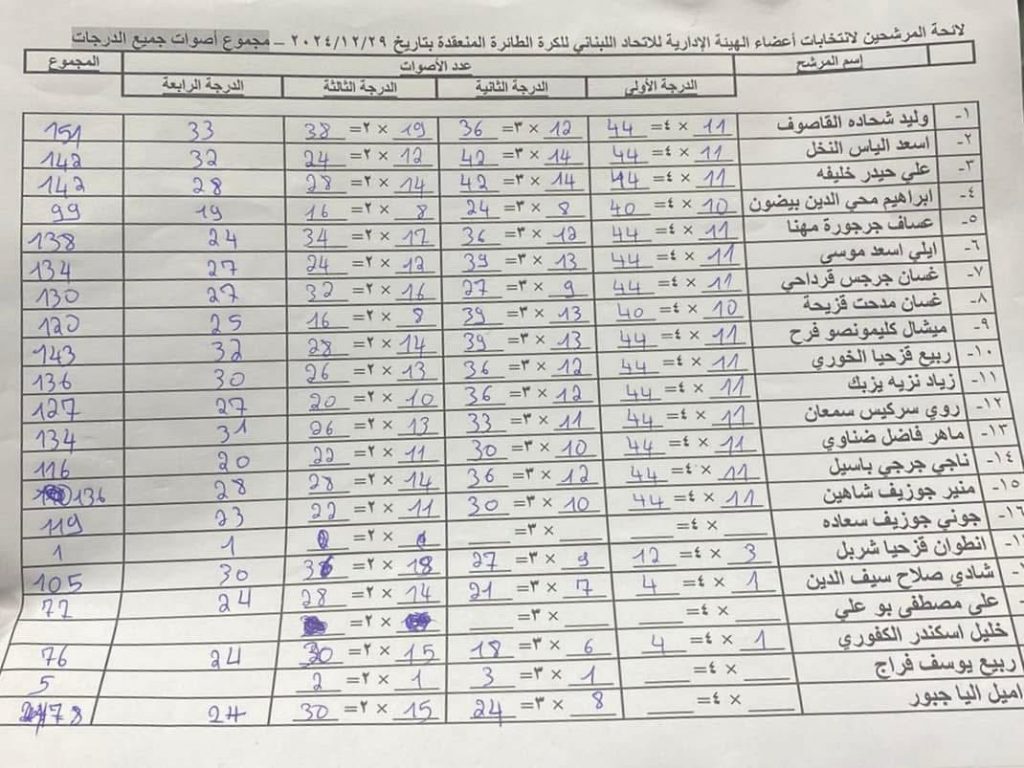 لائحة المرشحين لانتخابات أعضاء الهيئة الإدارية للاتحاد اللبناني للكرة الطائرة المنعقدة بتاريخ ٢٠٢٤/١٢/٢٩ – مجموع أصوات جميع الدرجات
إسم المرشح عدد الأصوات المجموع
الدرجة الأولى الدرجة الثانية الدرجة الثالثة الدرجة الرابعة
١- وليد شحاده القاصوف 11 × ٤= 44 12 × ٣= 36 19 × ٢= 38 33 151
٢- اسعد الياس النخل 11 × ٤= 44 14 × ٣= 42 12 × ٢= 24 32 142
٣- علي حيدر خليفه 11 × ٤= 44 14 × ٣= 42 14 × ٢= 28 28 142
٤- ابراهيم محي الدين بيضون 10 × ٤= 40 8 × ٣= 24 8 × ٢= 16 19 99
٥- عساف جرجورة مهنا 11 × ٤= 44 12 × ٣= 36 17 × ٢= 34 24 138
٦- ايلي اسعد موسى 11 × ٤= 44 13 × ٣= 39 12 × ٢= 24 27 134
٧- غسان جرجس قرداحي 11 × ٤= 44 9 × ٣= 27 16 × ٢= 32 27 130
٨- غسان مدحت قزيحة 10 × ٤= 40 13 × ٣= 39 8 × ٢= 16 25 120
٩- ميشال كليمونصو فرح 11 × ٤= 44 13 × ٣= 39 14 × ٢= 28 32 143
١٠- ربيع قزحيا الخوري 11 × ٤= 44 12 × ٣= 36 13 × ٢= 26 30 136
١١- زياد نزيه يزبك 11 × ٤= 44 12 × ٣= 36 10 × ٢= 20 27 127
١٢- روي سركيس سمعان 11 × ٤= 44 11 × ٣= 33 13 × ٢= 26 31 134
١٣- ماهر فاضل ضناوي 11 × ٤= 44 10 × ٣= 30 11 × ٢= 22 20 116
١٤- ناجي جرجي باسيل 11 × ٤= 44 12 × ٣= 36 14 × ٢= 28 28 136
١٥- منير جوزيف شاهين 11 × ٤= 44 10 × ٣= 30 11 × ٢= 22 23 119
١٦- جوني جوزيف سعاده × ٤= × ٣= × ٢= 1 1
انطوان قزحيا شربل 3 × ٤= 12 9 × ٣= 27 18 × ٢= 36 30 105
شادي صلاح سيف الدين 1 × ٤= 4 7 × ٣= 21 14 × ٢= 28 24 72
علي مصطفى بو علي × ٤= × ٣= × ٢=
خليل اسكندر الكفوري 1 × ٤= 4 6 × ٣= 18 15 × ٢= 30 24 76
ربيع يوسف فراج × ٤= 1 × ٣= 3 1 × ٢= 2 5
اميل اليا جبور × ٤= 8 × ٣= 24 15 × ٢= 30 24 78